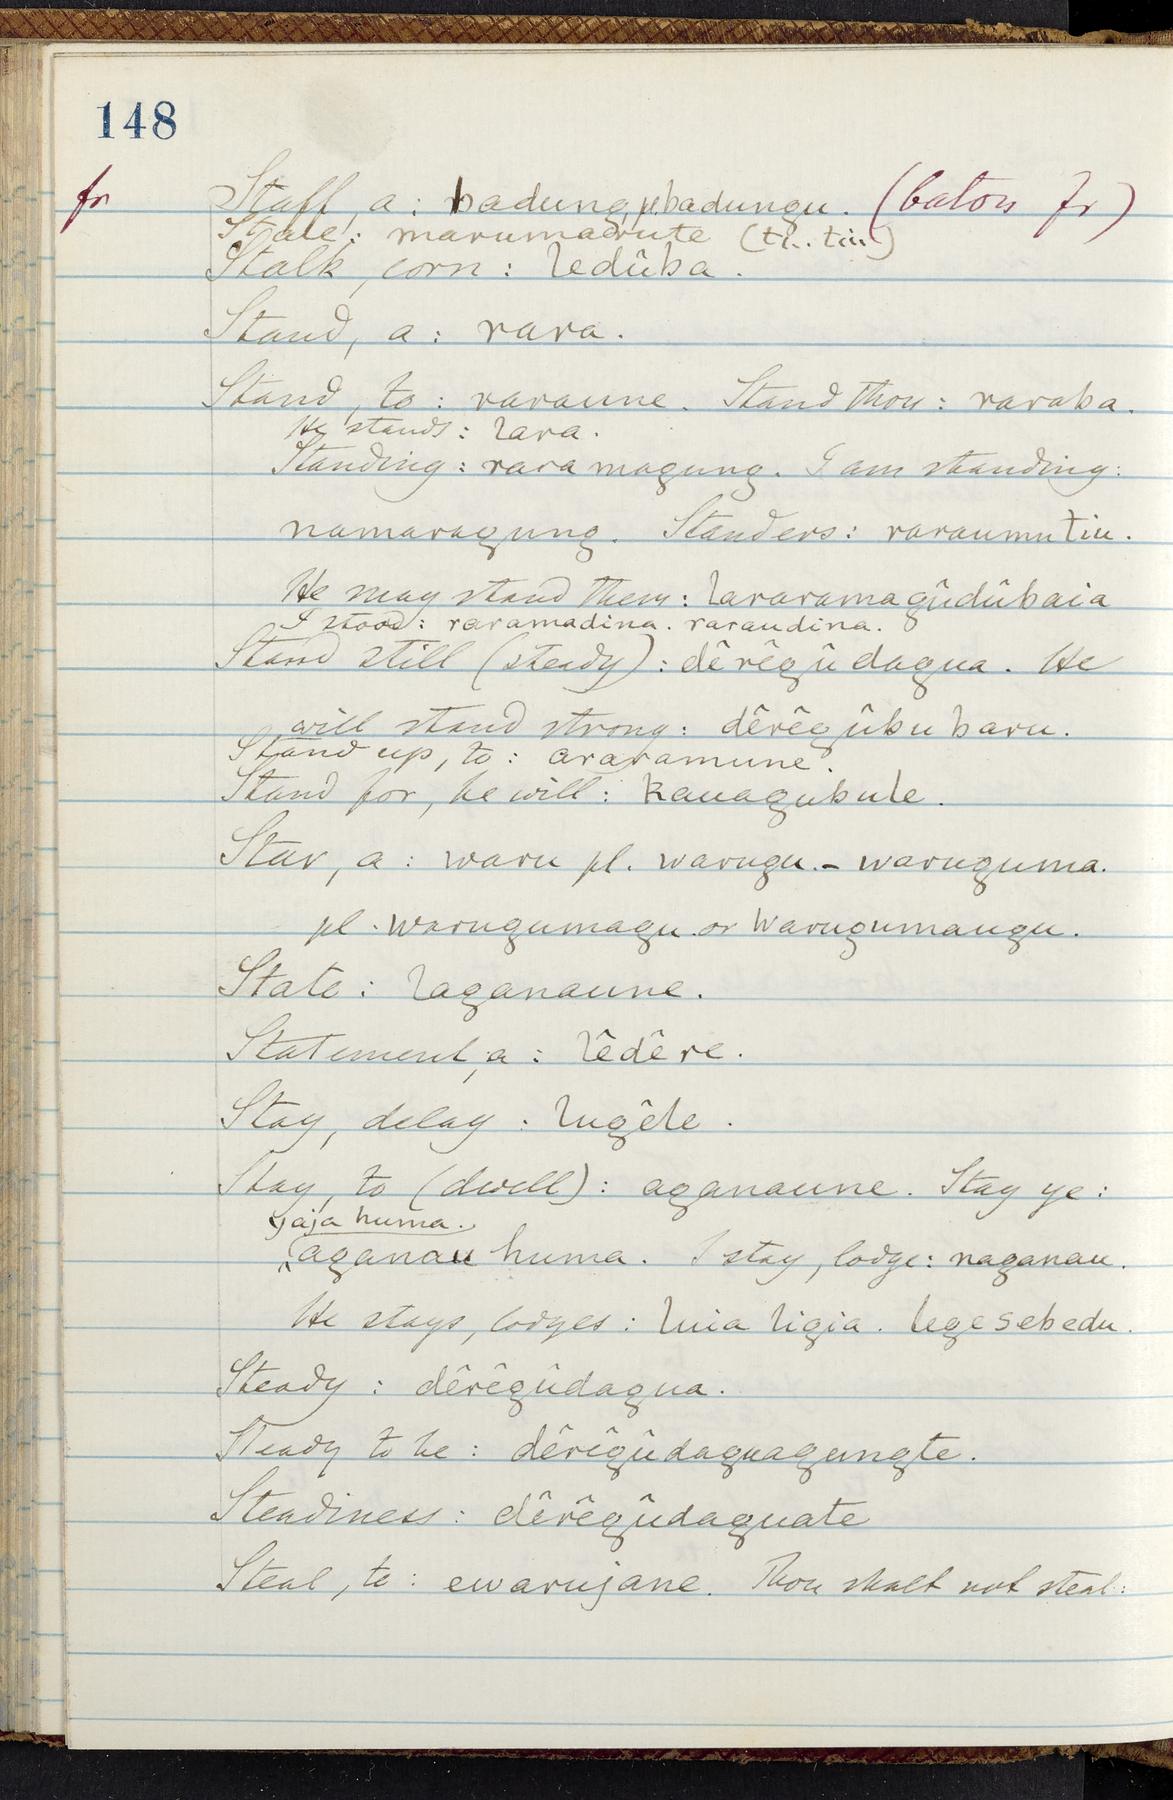 148
fr Staff, a: badung, pl. badungu. (baton fr)
Stale: marumadrute (ti.. tiu)
Stalk, corn: ledûba.
Stand, a: rara.
Stand, to: raraune. Stand thou: raraba.
He stands: lara.
Standing: rara magung. I am standing:
namaragung. Standers: raraumutiu.
He may stand them: lararamagûdûbaia
I stood: raramadina. raraudina.
Stand still (steady): dêrêgûdagua. He
will stand strong: dêrêgûbubaru.
Stand up, to: araramune.
Stand for, he will: kauagubule.
Star, a: waru pl. warugu. - waruguma.
pl. warugumagu or warugumaugu.
State: laganaune.
Statement, a: lêdêre.
Stay, delay: lugêle.
Stay, to (dwell): aganaune. Stay ye:
jaja huma.
aganau huma. I stay, lodge: naganau.
He stays, lodges: luia ligia. legesebedu.
Steady: dêrêgûdagua.
Steady to be: dêrêgûdaguagungte.
Steadiness: dêrêgûdaguate
Steal, to: ewarujane. Thou shalt not steal: